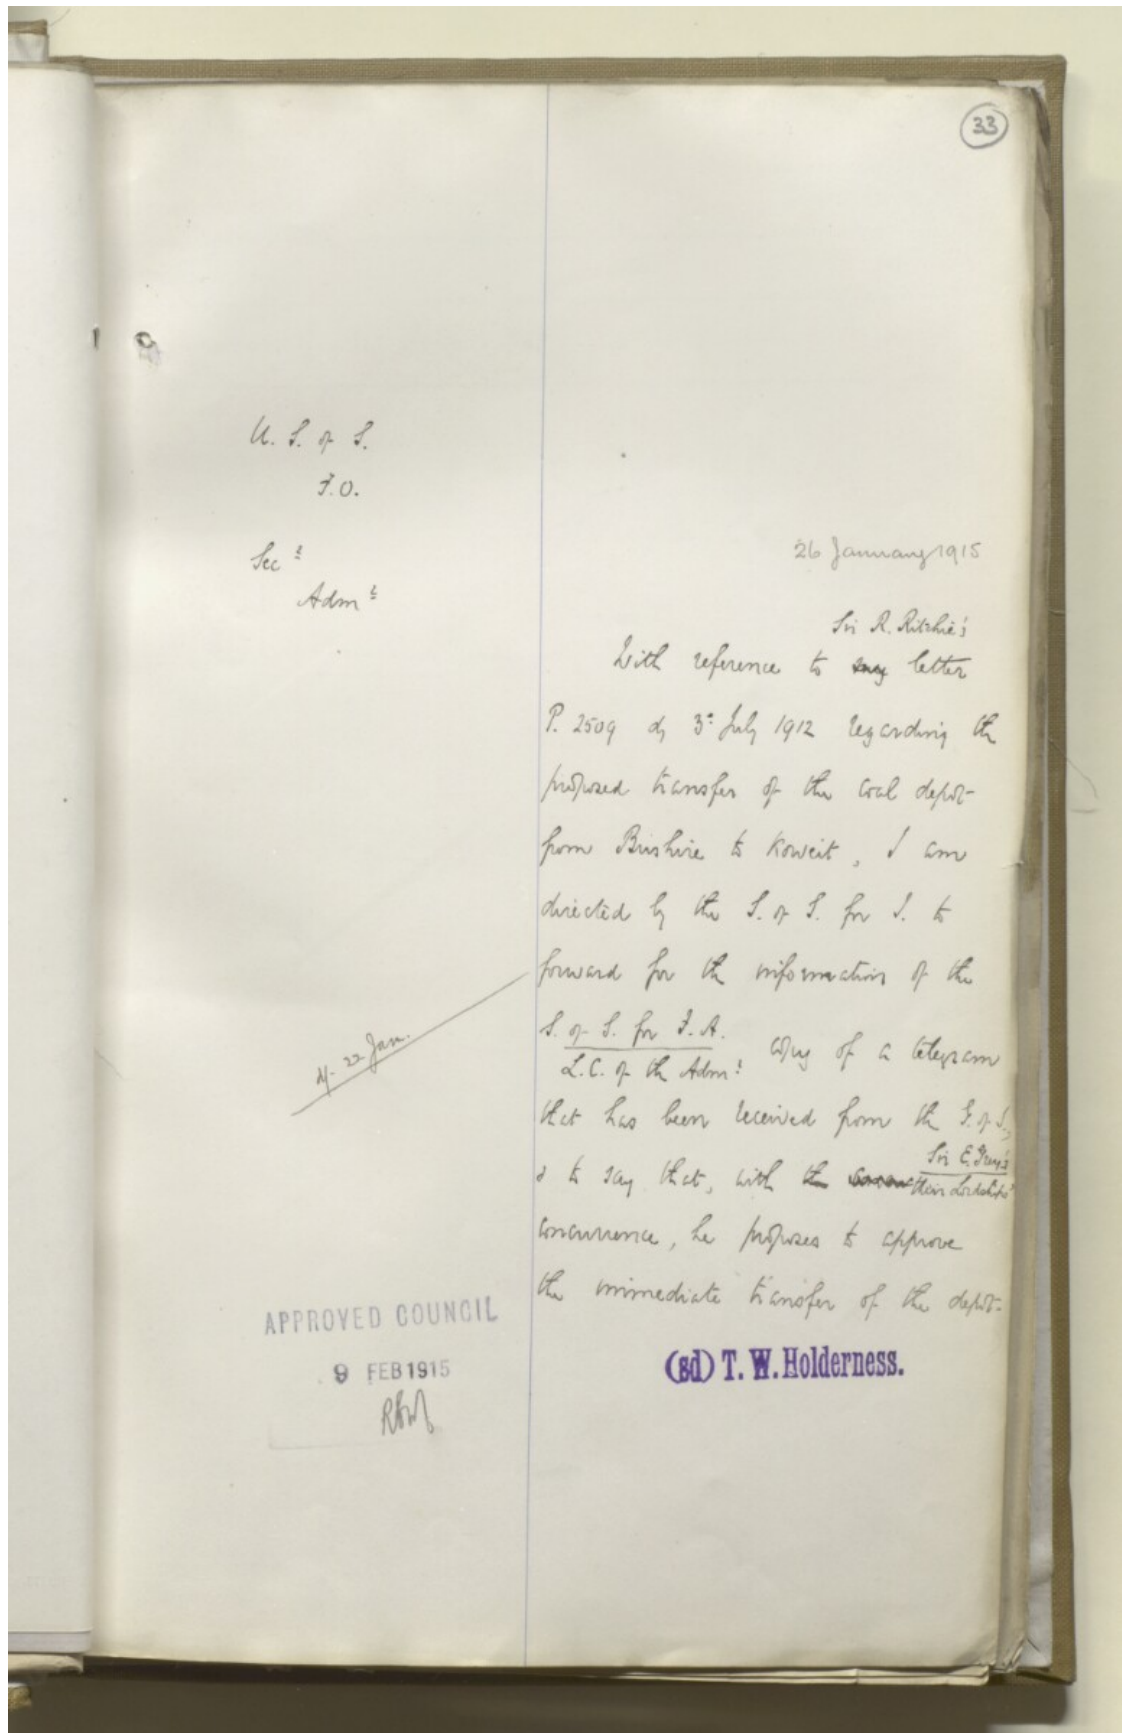 33
U. S. of S.
F.O.
Secy
Admy
26 January 1915
Sir R. Ritchie's
With reference to my letter
P. 2509 of 3rd July 1912 regarding the
proposed transfer of the coal depôt
from Bushire to Koweit, I am
directed by the S. of S. for I. to
forward for the information of the
S. of S. for F.A.
L.C. of the Admy copy of a telegram
d/- 22 Jan.
that has been received from the G. of I.,
Sir E. Grey's
& to say that, with the their Lordships'
concurrence, he proposes to approve
the immediate transfer of the depôt.
APPROVED COUNCIL
9 FEB 1915
(sd) T. W. Holderness.